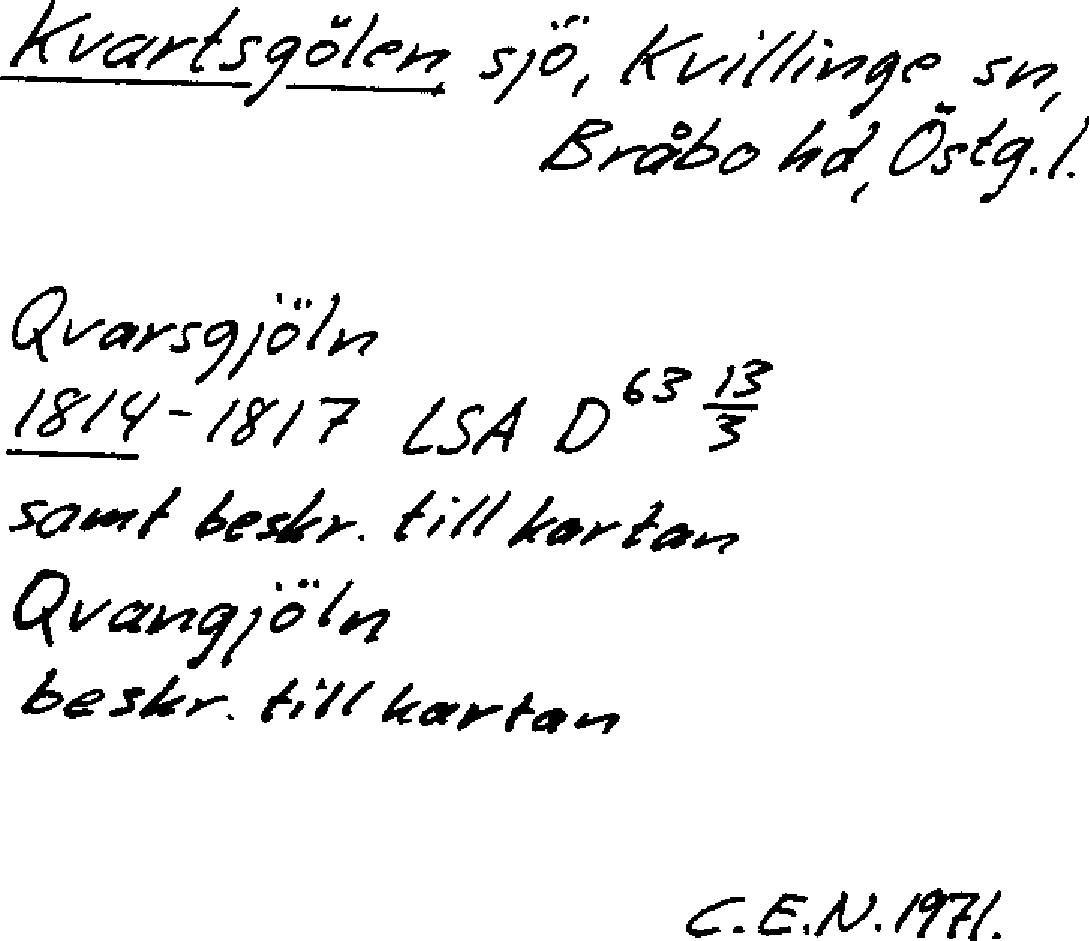 Kvartsgölen sjö, Kvillinge sn,
Bråbo hd, Östg.l.
Qvarsgjöln
1814-1817 LSA D 63 13/3
samt beskr. till kartan
Qvangjöln
beskr. till kartan
C.E.N. 1971.